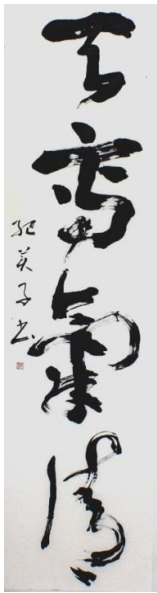 天高氣清
紀美子書